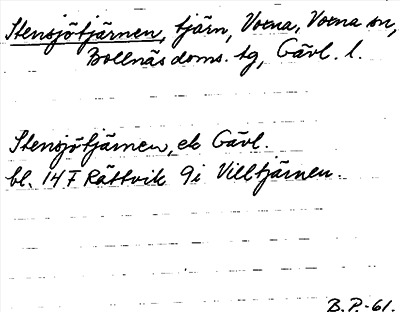 Stensjötjärnen, tjärn, Voxna, Voxna sn,
Bollnäs doms. tg, Gävl. l.
Stensjötjärnen, ek Gävl.
bl. 14 F Rättvik 9i Villtjärnen.
B.P.-61.